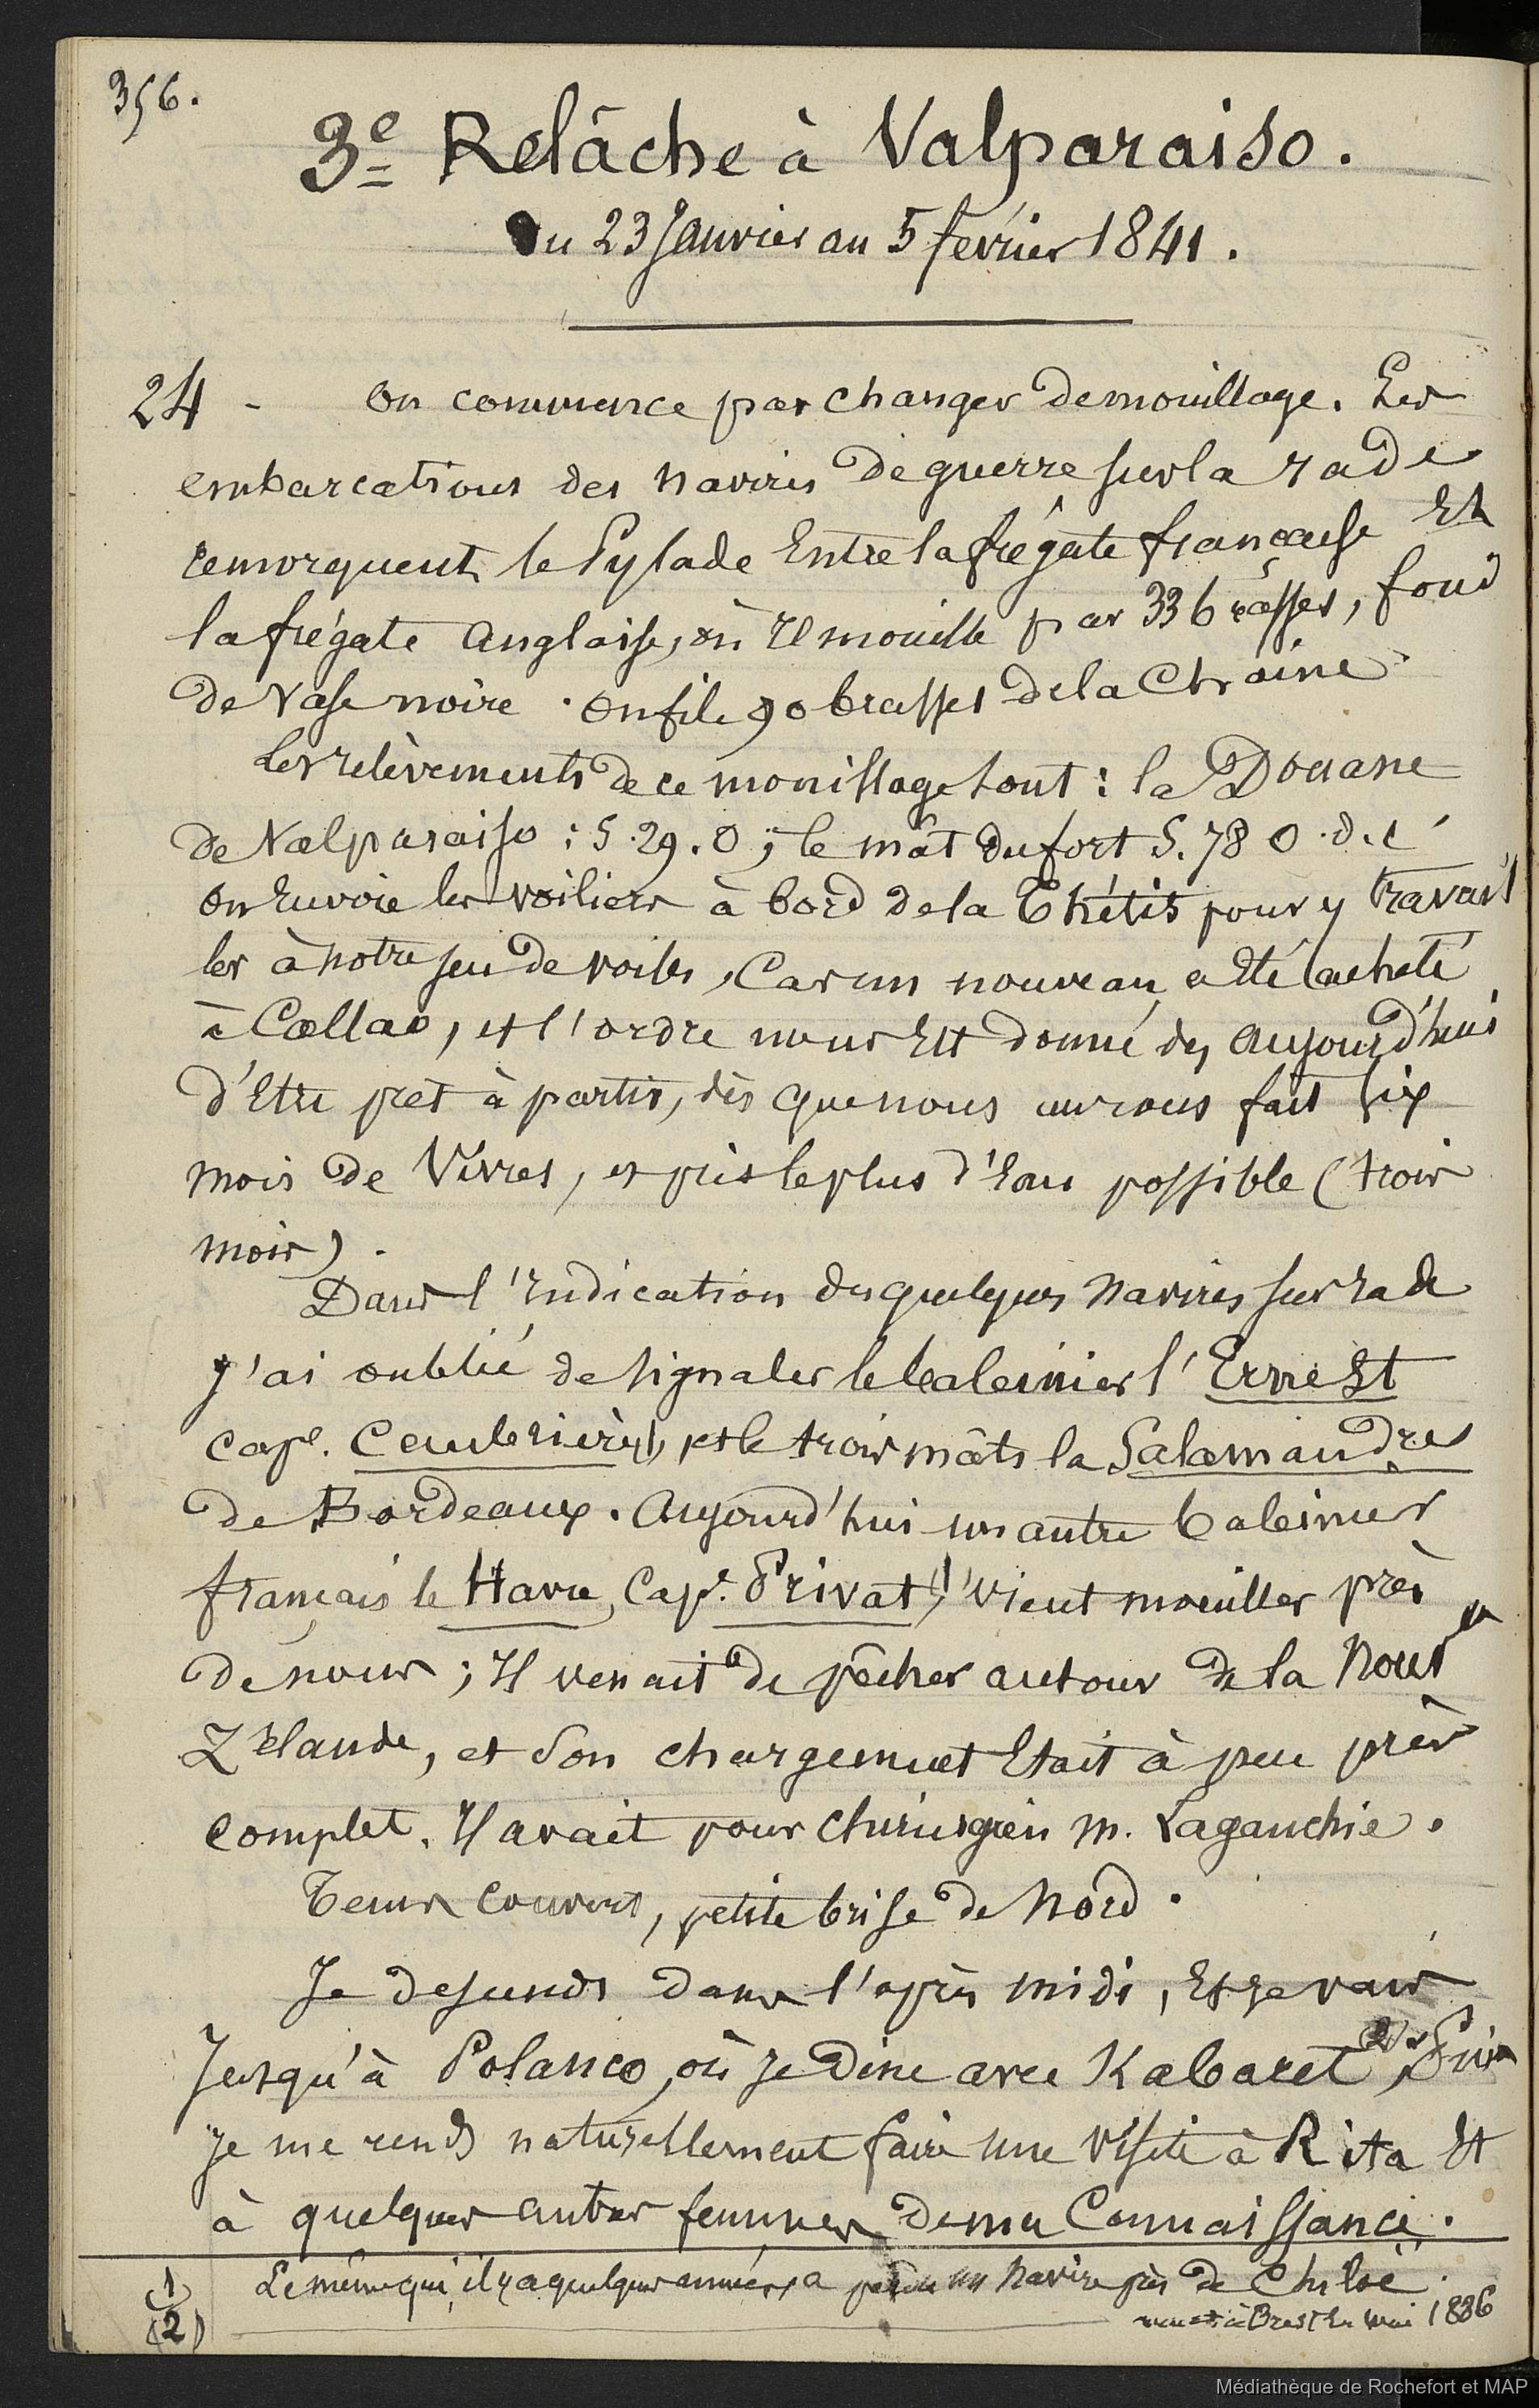 356.
3e Relâche à Valparaiso.
Du 23 Janvier au 5 février 1841.
24 - On commence par changer de mouillage. Les
embarcations des navires de guerre sur la rade
remorquent le Pylade Entre la frégate française Et
la frégate Anglaise, où Il mouille par 33 brasses, fond
de Vase noire. On file 90 brasses de la Chaine
Les relèvements de ce mouillage sont : la Douane
de Valparaiso : S. 29. O ; le mât du fort S. 78 O. d. c
On Envoie les voiliers à bord de la Thétis pour y travail
ler à notre jeu de voiles, Car un nouveau a été acheté
à Callao, et l'ordre nous Est donné des Aujourd'hui
d'Etre pret à partir, dès que nous aurons fait six
mois de Vivres, et pris le plus d'Eau possible (trois
mois).
Dans l'Indication des quelques Navires sur rade
J'ai oublié de signaler le baleinier l'Ernest
cape. Caubrière(1), et le trois mâts la Salamandre
de Bordeaux. Aujourd'hui un autre baleinier
français le Havre, Cape. Privat(1), vient mouiller près
de nous ; Il venait de pêcher autour de la Nouvle
Zélande, et son chargement Etait à peu près
complet. Il avait pour Chirurgien M. Laganchie.
Tems Couvert, petite brise de Nord.
Je descends dans l'après midi, Et Je vais
Jusqu'à Polanco, où Je Dine avec Kabaret (2). Puis
Je me rends naturellement faire une Visite à Rita Et
à quelques autres femmes de ma Connaissance.
(1) Le même qui, il y a quelques années, a perdu un Navire près de Chiloë.
(2) à Brest En mai 1886
Médiathèque de Rochefort et MAP